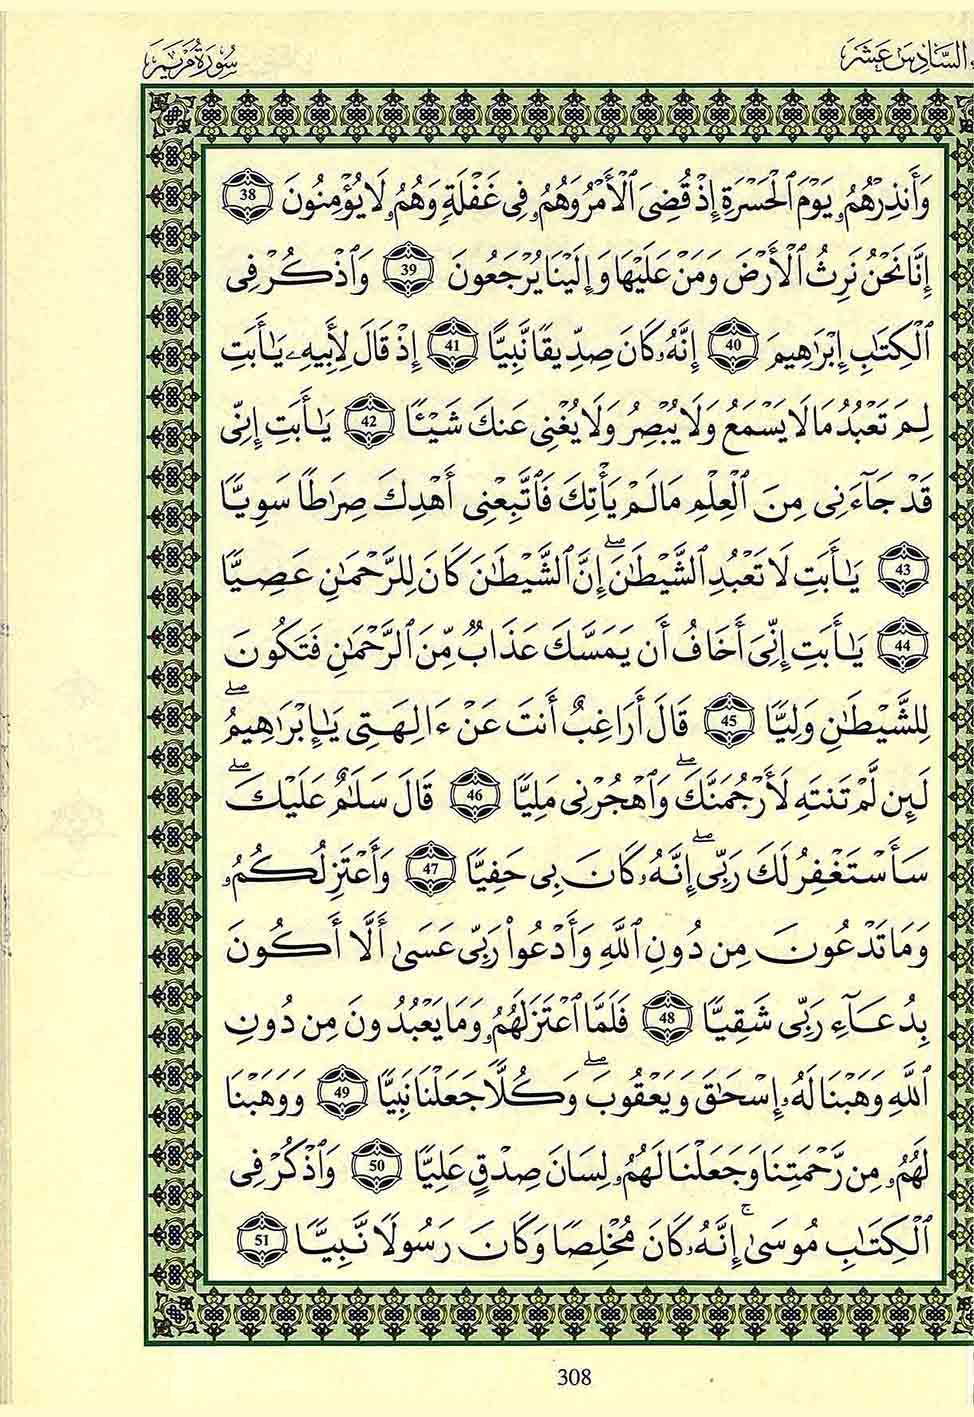 السَّادِسَ عَشَرَ
سُورَةُ مَرْيَمَ
وَأَنذِرْهُمُۥ يَوْمَ ٱلْحَسْرَةِ إِذْ قُضِىَ ٱلْأَمْرُ وَهُمُۥ فِى غَفْلَةٍ وَهُمُۥ لَا يُؤْمِنُونَ 38
إِنَّا نَحْنُ نَرِثُ ٱلْأَرْضَ وَمَنْ عَلَيْهَا وَإِلَيْنَا يُرْجَعُونَ 39 وَٱذْكُرْ فِى
ٱلْكِتَٰبِ إِبْرَٰهِيمَ 40 إِنَّهُۥ كَانَ صِدِّيقًا نَّبِيًّا 41 إِذْ قَالَ لِأَبِيهِ يَٰٓأَبَتِ
لِمَ تَعْبُدُ مَا لَا يَسْمَعُ وَلَا يُبْصِرُ وَلَا يُغْنِى عَنكَ شَيْـًٔا 42 يَٰٓأَبَتِ إِنِّى
قَدْ جَآءَنِى مِنَ ٱلْعِلْمِ مَا لَمْ يَأْتِكَ فَٱتَّبِعْنِى أَهْدِكَ صِرَٰطًا سَوِيًّا
43 يَٰٓأَبَتِ لَا تَعْبُدِ ٱلشَّيْطَٰنَ ۖ إِنَّ ٱلشَّيْطَٰنَ كَانَ لِلرَّحْمَٰنِ عَصِيًّا
44 يَٰٓأَبَتِ إِنِّىَ أَخَافُ أَن يَمَسَّكَ عَذَابٌ مِّنَ ٱلرَّحْمَٰنِ فَتَكُونَ
لِلشَّيْطَٰنِ وَلِيًّا 45 قَالَ أَرَاغِبٌ أَنتَ عَنْ ءَالِهَتِى يَٰٓإِبْرَٰهِيمُ ۖ
لَئِن لَّمْ تَنتَهِ لَأَرْجُمَنَّكَ ۖ وَٱهْجُرْنِى مَلِيًّا 46 قَالَ سَلَٰمٌ عَلَيْكَ ۖ
سَأَسْتَغْفِرُ لَكَ رَبِّىَ ۖ إِنَّهُۥ كَانَ بِى حَفِيًّا 47 وَأَعْتَزِلُكُمُۥ
وَمَا تَدْعُونَ مِن دُونِ ٱللَّهِ وَأَدْعُوا۟ رَبِّى عَسَىٰٓ أَلَّآ أَكُونَ
بِدُعَآءِ رَبِّى شَقِيًّا 48 فَلَمَّا ٱعْتَزَلَهُمُۥ وَمَا يَعْبُدُونَ مِن دُونِ
ٱللَّهِ وَهَبْنَا لَهُۥٓ إِسْحَٰقَ وَيَعْقُوبَ ۖ وَكُلًّا جَعَلْنَا نَبِيًّا 49 وَوَهَبْنَا
لَهُمُۥ مِن رَّحْمَتِنَا وَجَعَلْنَا لَهُمُۥ لِسَانَ صِدْقٍ عَلِيًّا 50 وَٱذْكُرْ فِى
ٱلْكِتَٰبِ مُوسَىٰٓ ۚ إِنَّهُۥ كَانَ مُخْلِصًا وَكَانَ رَسُولًا نَّبِيًّا 51
308